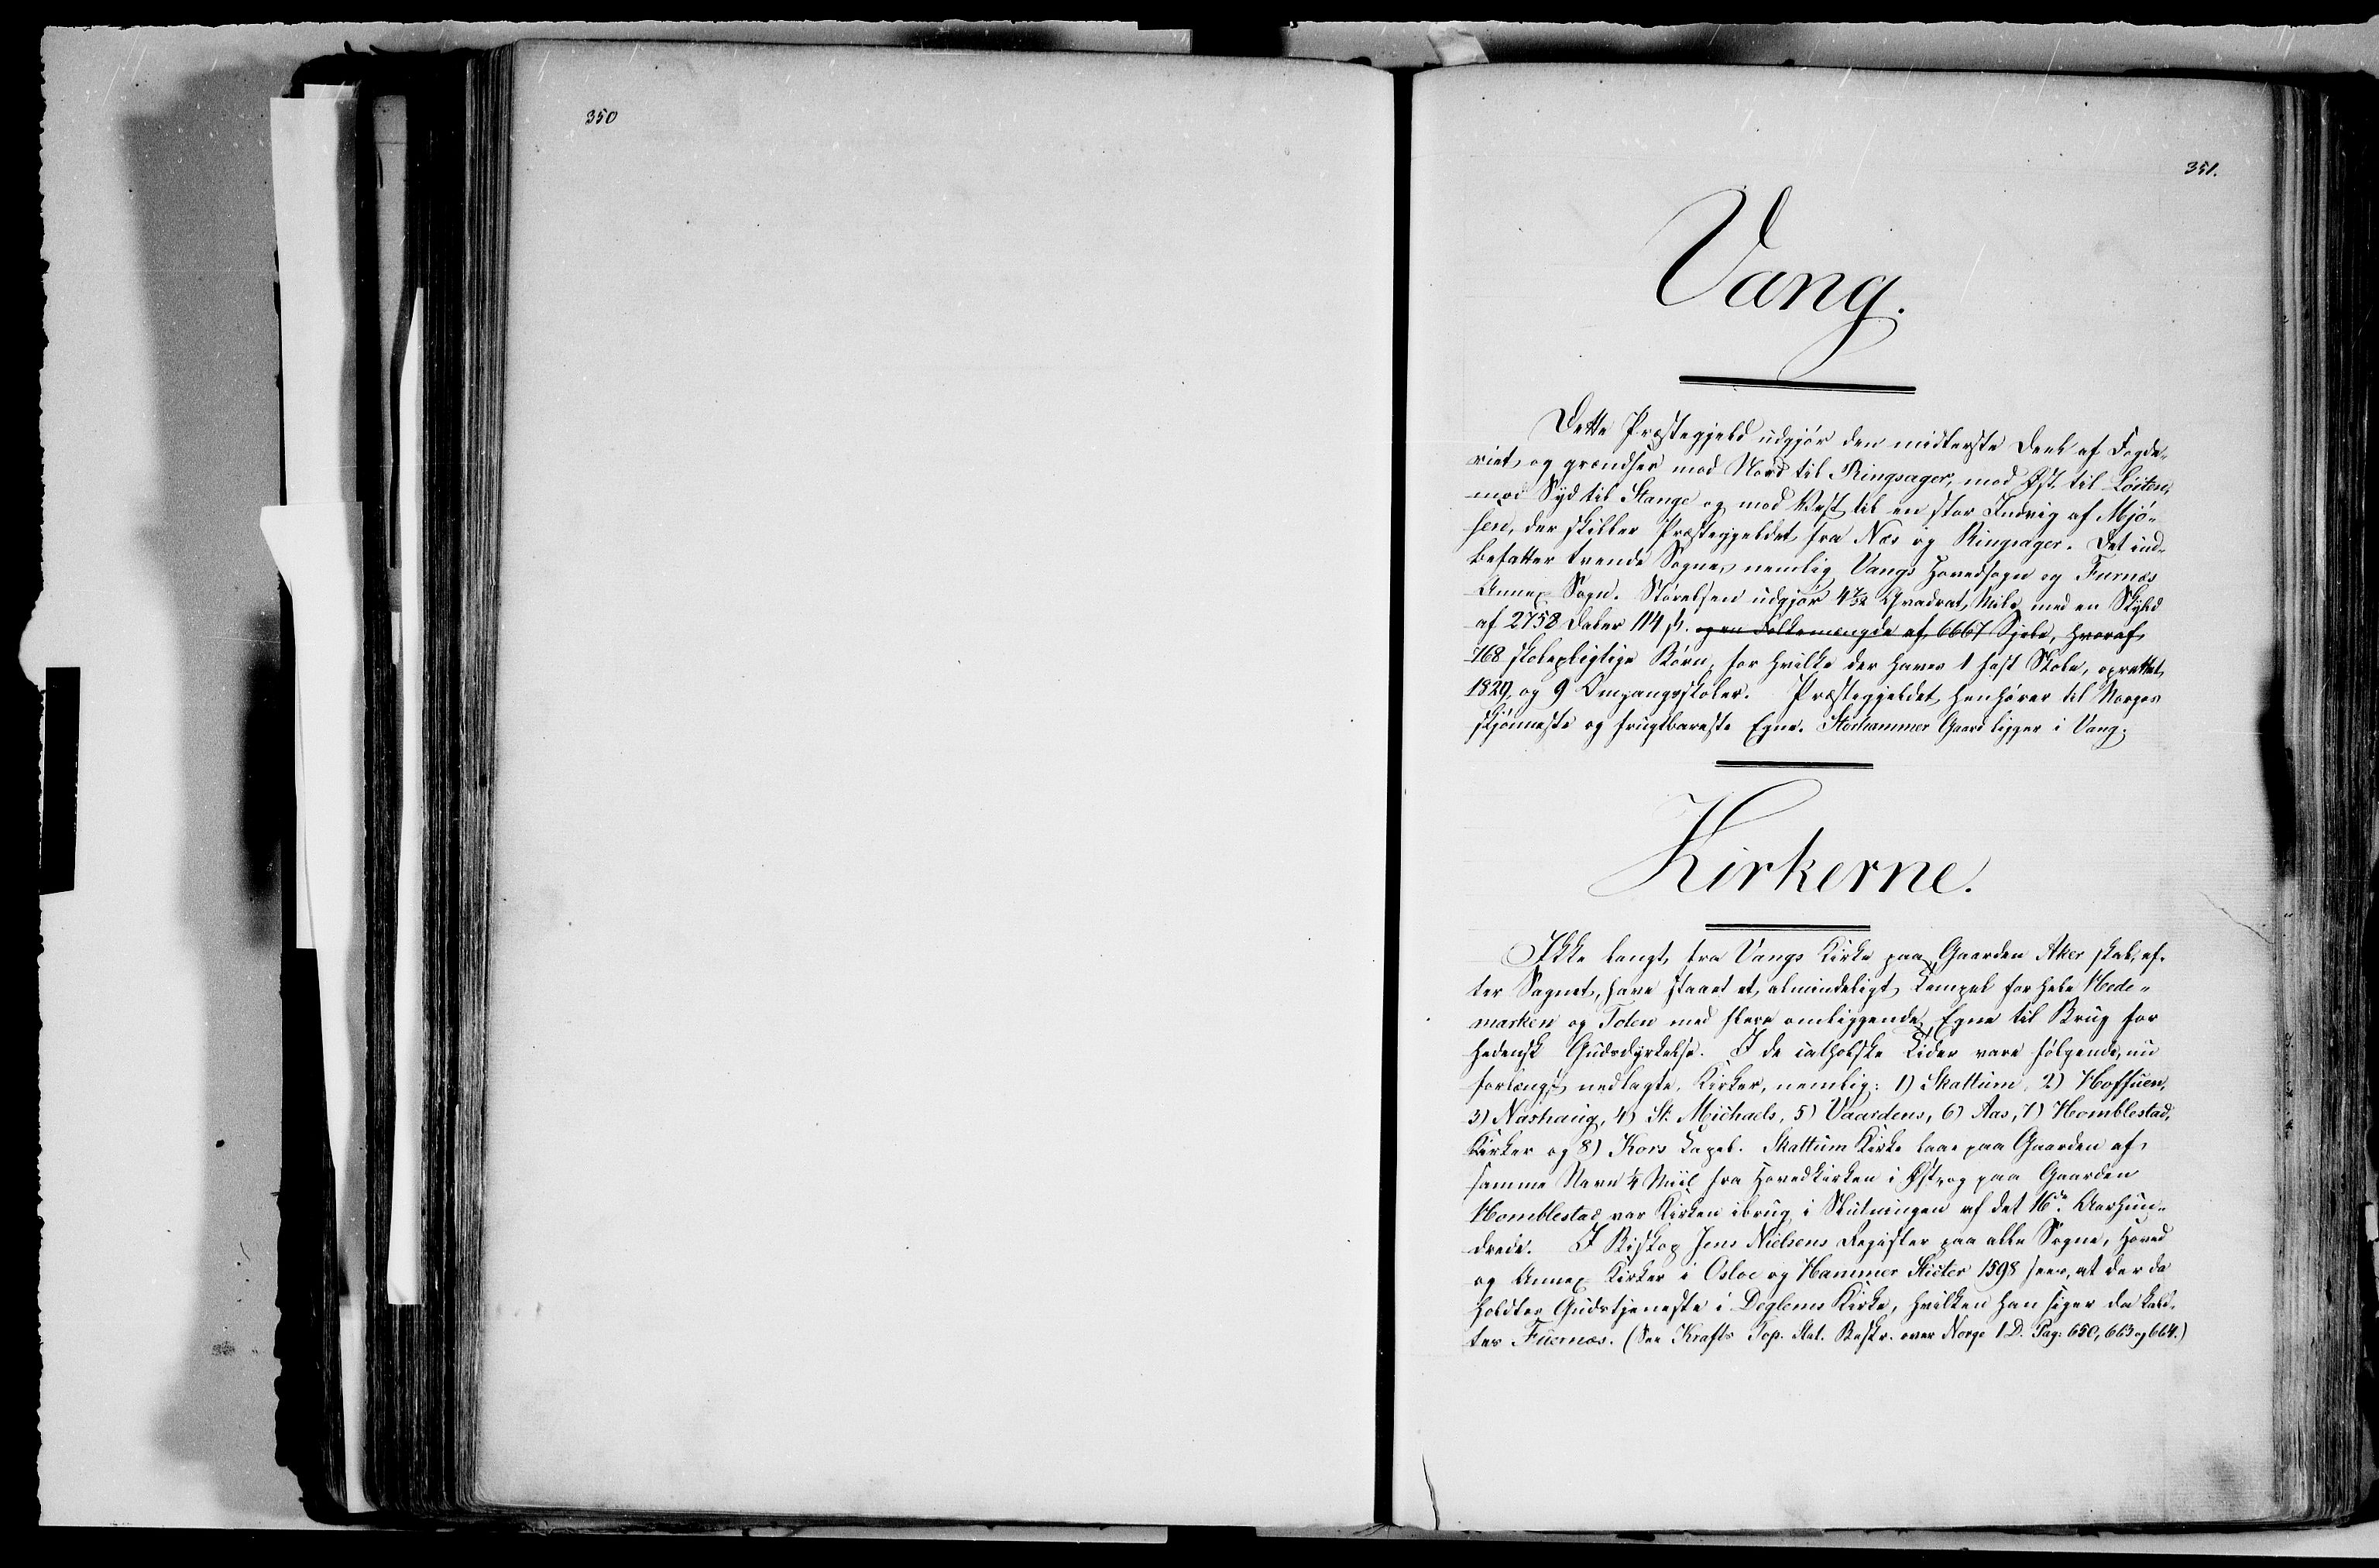 350
351.
Vang.
Dette Præstegjeld udgjør den midterste Deel af Fogde-
riet, og grændser mod Nord til Ringsager, mod Øst til Löiten,
mod Syd til Stange og mod Vest til en stor Indvig af Mjö-
sen, der skiller Præstegjeldet fra Næs og Ringsager. Det ind-
befatter tvende Sogne, nemlig Vangs Hovedsogn og Furnæs
Annex Sogn. Størelsen udgjør 4 7/32 Qvadrat Mile med en Skyld
af 2758 Daler 114 ß. og en Folkemængde af 6667 Sjele, hvoraf
768 skolepligtige Børn, for hvilke der haves 1 fast Skole, oprettet
1829, og 9 Omgangsskoler. Præstegjeldet henhører til Norges
skjønneste og frugtbareste Egne. Storhammer Gaard ligger i Vang.
Kirkerne.
Ikke langt fra Vangs Kirke paa Gaarden Aker skal, ef-
ter Sagnet, have staaet et almindeligt Tempel for hele Hede-
marken og Toten med flere omliggende Egne til Brug for
hedensk Gudsdyrkelse. I de catholske Tider vare følgende, nu
forlængst nedlagte, Kirker, nemlig: 1) Skattum, 2) Hoffuen,
3) Nashaug, 4) St. Michaels, 5) Vaardens, 6) Aas, 7) Homblestad,
Kirker og 8) Kors Capel. Skattum Kirke laae paa Gaarden af
samme Navn 1/4 Miil fra Hovedkirken i Øst, og paa Gaarden
Homblestad var Kirken ibrug i Slutningen af det 16de Aarhun-
drede. I Biskop Jens Nielsens Register paa alle Sogne, Hoved
og Annex Kirker i Osloe og Hammer Sticter 1598 sees, at der da
holdtes Gudstjeneste i Deglems Kirke, hvilken han siger da kald-
tes Fuernæs. (See Krafts Top. Stat. Beskr. over Norge 1 D. Pag: 650, 663 og 664.)